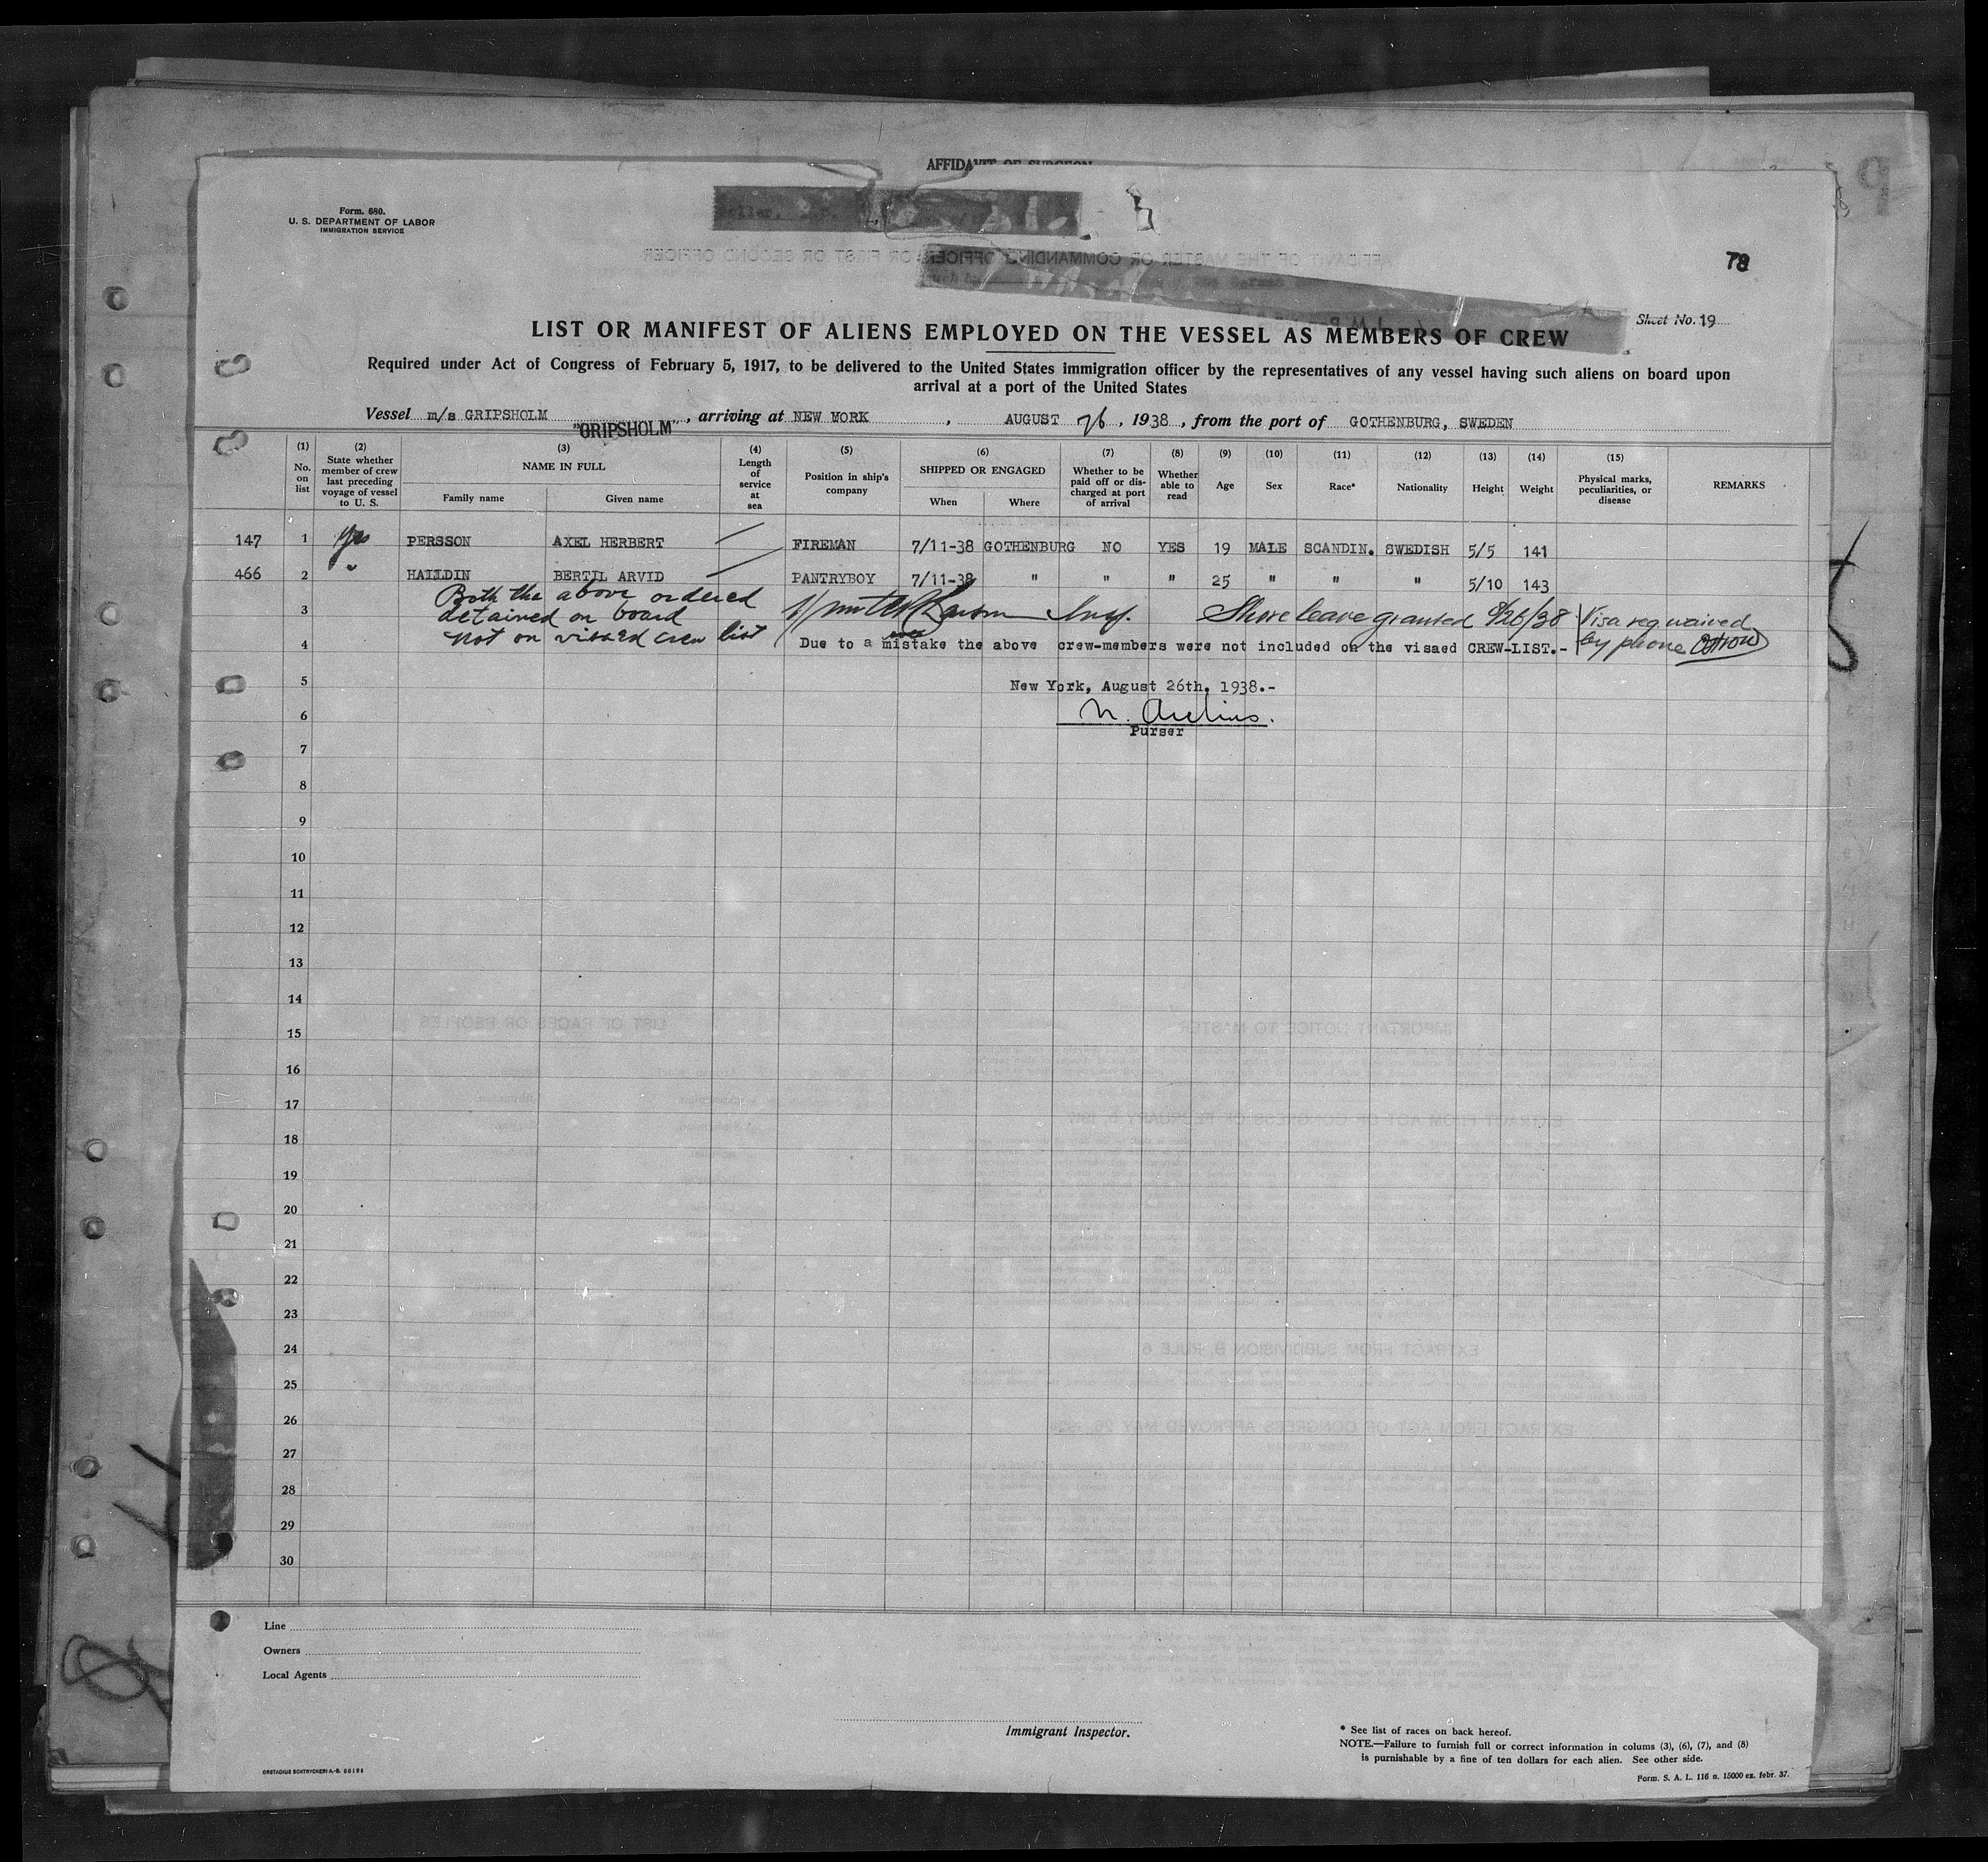 AFFIDAVIT OF SURGEON
Form. 680.
U. S. DEPARTMENT OF LABOR
IMMIGRATION SERVICE
78
Sheet No. 19
LIST OR MANIFEST OF ALIENS EMPLOYED ON THE VESSEL AS MEMBERS OF CREW
Required under Act of Congress of February 5, 1917, to be delivered to the United States immigration officer by the representatives of any vessel having such aliens on board upon
arrival at a port of the United States
Vessel m/s GRIPSHOLM, arriving at NEW WORK, AUGUST 26, 1938, from the port of GOTHENBURG, SWEDEN
"GRIPSHOLM"
(1) No. on list (2) State whether member of crew last preceding voyage of vessel to U. S. (3) NAME IN FULL Family name Given name (4) Length of service at sea (5) Position in ship's company (6) SHIPPED OR ENGAGED When Where (7) Whether to be paid off or discharged at port of arrival (8) Whether able to read (9) Age (10) Sex (11) Race* (12) Nationality (13) Height (14) Weight (15) Physical marks, peculiarities, or disease REMARKS
147 1 yes PERSSON AXEL HERBERT FIREMAN 7/11-38 GOTHENBURG NO YES 19 MALE SCANDIN. SWEDISH 5/5 141
466 2 " HAILDIN BERTIL ARVID PANTRYBOY 7/11-38 " " " 25 " " " 5/10 143
Both the above ordered
3 detained on board Insp. Shore leave granted 8/26/38 Visa req waived
not on visaed crew list by phone
4 Due to a mistake the above crew-members were not included on the visaed CREW-LIST.-
5 New York, August 26th, 1938.-
6
Purser
7
8
9
10
11
12
13
14
15
16
17
18
19
20
21
22
23
24
25
26
27
28
29
30
Line
Owners
Local Agents
Immigrant Inspector.
* See list of races on back hereof.
NOTE.—Failure to furnish full or correct information in colums (3), (6), (7), and (8)
is purnishable by a fine of ten dollars for each alien. See other side.
Form. S. A. L. 116 n. 15000 ex. febr. 37.